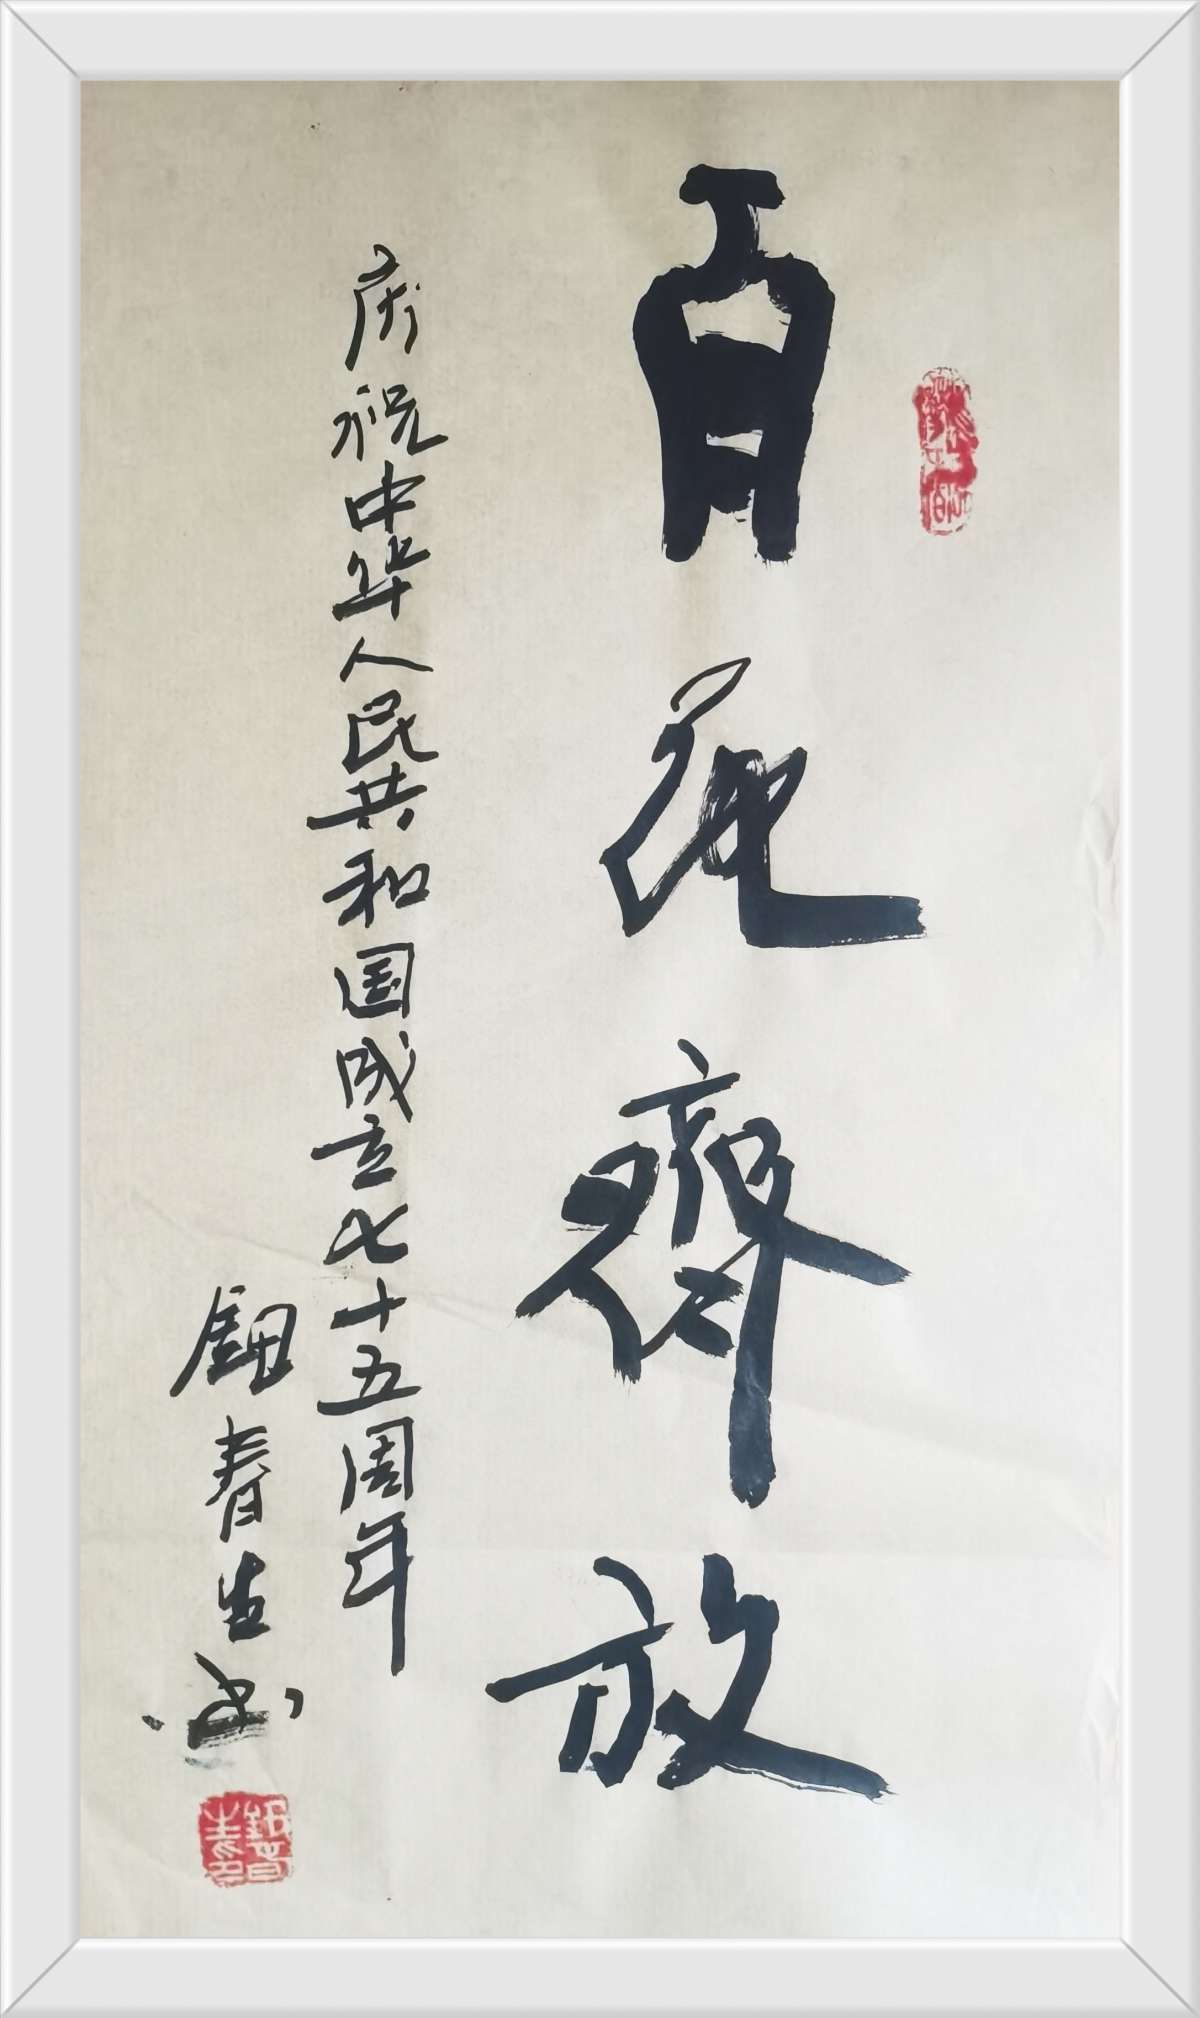 百花齊放
庆祝中华人民共和国成立七十五周年
钿春生书